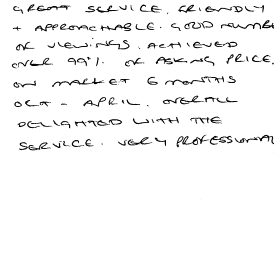 GREAT SERVICE. FRIENDLY
+ APPROACHABLE. GOOD NUMBER
OF VIEWINGS. ACHIEVED
OVER 99% OF ASKING PRICE.
ON MARKET 6 MONTHS
OCT - APRIL. OVERALL
DELIGHTED WITH THE
SERVICE. VERY PROFESSIONAL